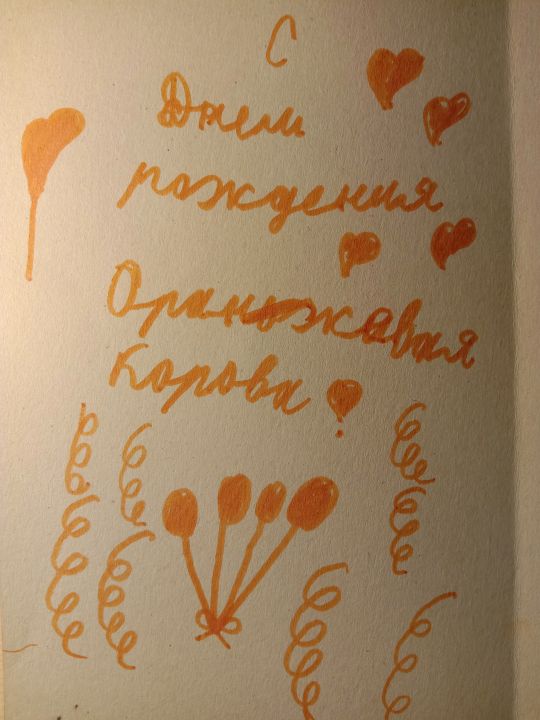 С
Днем
рождения
Оранжевая
Корова!